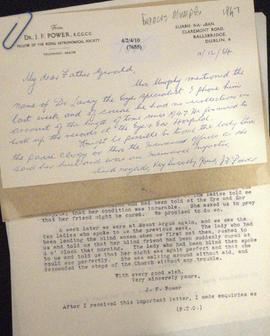 1947
From
Dr. J. F. POWER, K.C.G.C.
FELLOW OF THE ROYAL ASTRONOMICAL SOCIETY
4/2/4/10
(7655)
CLAREMONT ROAD,
BALLSBRIDGE,
DUBLIN, 4
My dear Father Gerald,
Mrs Murphy mentioned the
name of Dr. the Eye Specialist I phone him
last week, and of course he had no recollection on
account of the length of time since 1947. He promised to
look up the records at the Eye & Ear Hospital.
Might it be possible to trace the lady from
the passes clergy or thro the Insurance Offices as she
said her husband was an Insurance Inspector
Kind regards, Very Sincerely Yours, J F Power
ladies told me
told at the Eye and Ear
that her condition was incurable. She asked us to pray
that her friend might be cured. We promised to do so.
A week later we were at Mount Argus again, and we saw the
two ladies who spoke to us the previous week. The lady who had
been leading the blind woman when we first met them, rushed to
us and told us that her blind friend had been suddenly cured at
o'clock that morning. The lady who had been blind then spoke
to us and told us that her sight was again perfect and that she
could see perfectly. She was walking around without aid, and
descended the steps of the church without any trouble.
With every good wish,
Very sincerely yours,
J. F. Power
After I received this important letter, I made enquiries as
(P.T.O.)